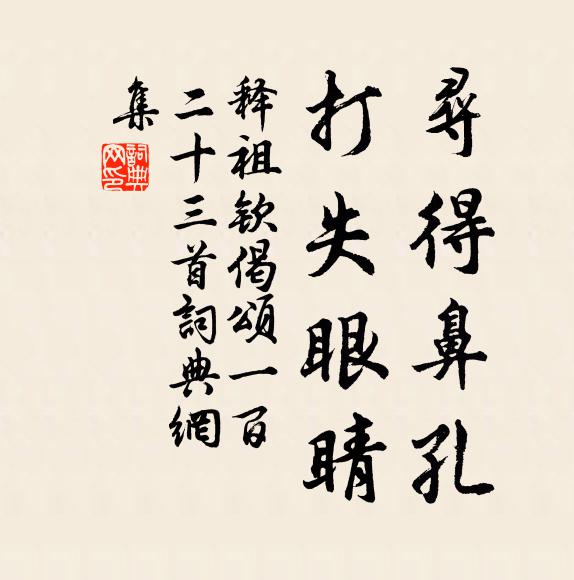 尋得鼻孔
打失眼睛
释祖欽偈頌一百
二十三首詞典網
集
詞典
网印